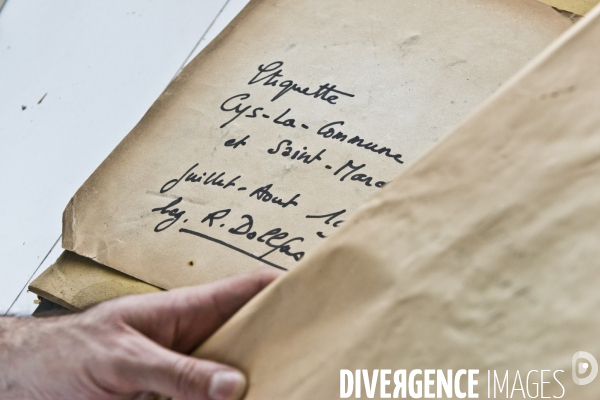 Etiquette
Cys-La-Commune
et Saint-Marc
Juillet-Aout 19
leg. R. Dollfus
DIVERGENCE IMAGES